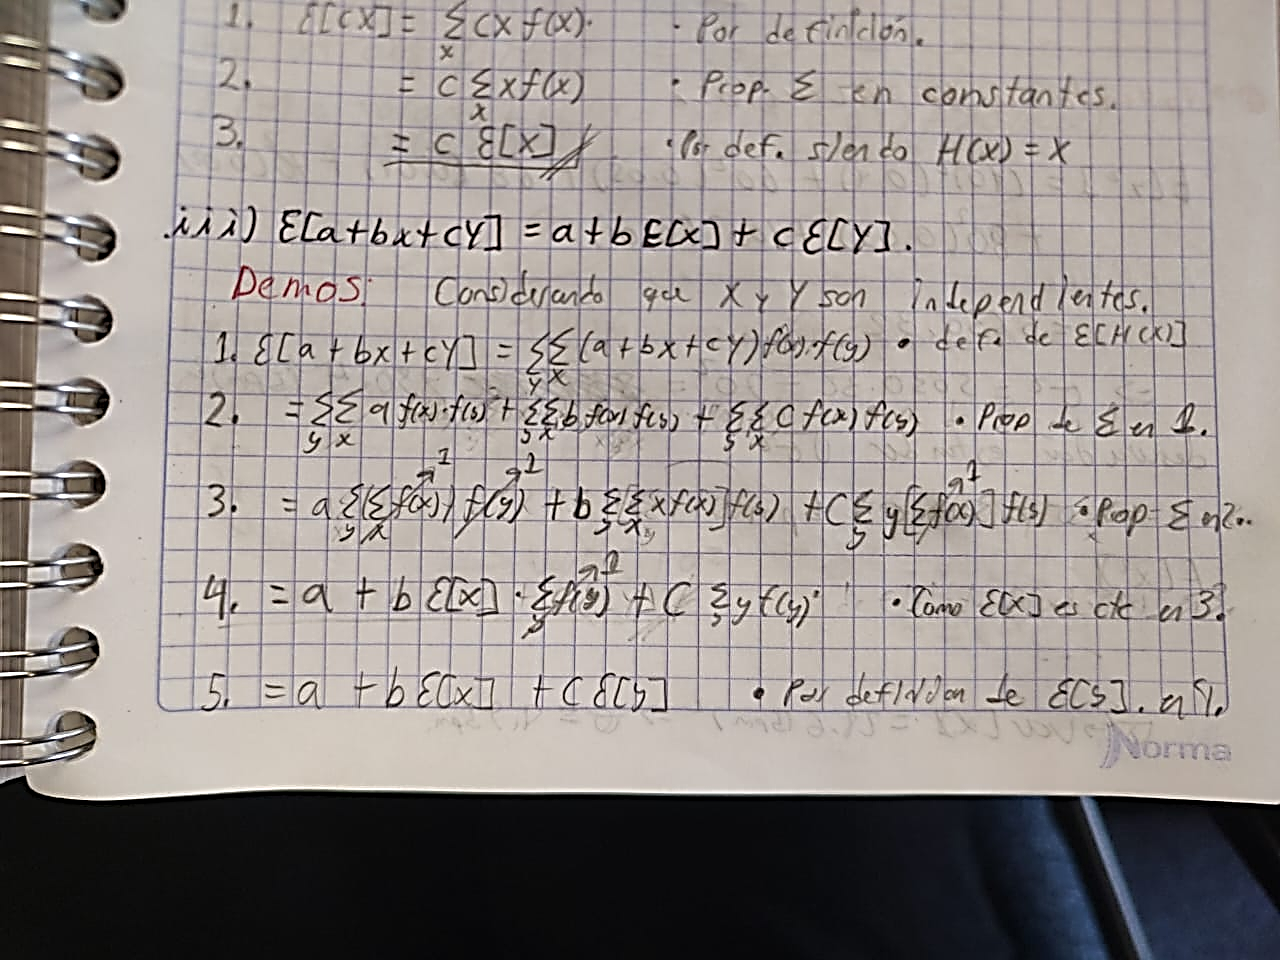 1. E[CX] = Σx CX f(x). • Por definición.
2. = C Σx x f(x) • Prop. Σ en constantes.
3. = C E[X] • Por def. siendo H(X) = X
iii) E[a+bx+cY] = a+bE[x]+cE[Y].
Demos: Considerando que X y Y son independientes.
1. E[a+bx+cY] = Σy Σx (a+bx+cY) f(x).f(y) • def. de E[H(X)]
2. = Σy Σx a f(x).f(y) + Σy Σx b f(x) f(y) + Σy Σx C f(x) f(y) • Prop de Σ en 1.
3. = a Σy (Σx f(x)→1) f(y)→1 + b Σy [Σx x f(x)] f(y) + C Σy y [Σ f(x)→1] f(y) • Prop Σ en 2.
4. = a + b E[x] · Σy f(y)→1 + C Σy y f(y) • Como E[X] es cte en 3.
5. = a + b E[x] + C E[y] • Por definición de E[y]. en
Norma